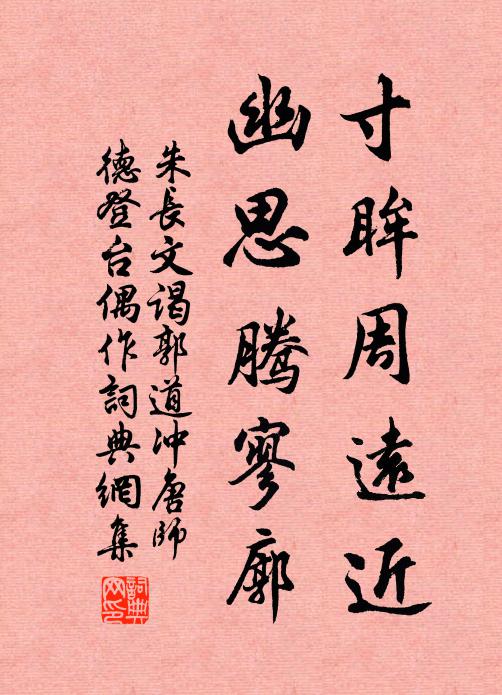 寸眸周遠近
幽思騰寥廓
朱長文謁郭道沖唐師
德登台偶作詞典網集
詞典網印